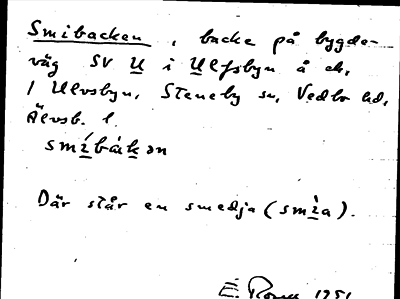 Smibacken, backe på bygde-
väg SV U i Ulfsbyn å ek,
/ Ulvsbyn, Steneby sn, Vedbo hd,
Älvsb. l.
smíbákən
Där står en smedja (smìa).
E. 1951